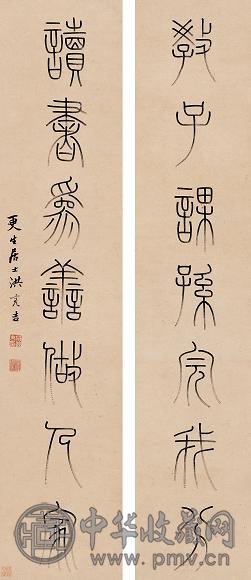 教子課孫完我分
讀書為善做人家
更生居士洪亮吉
中华收藏网
www.pmv.cn